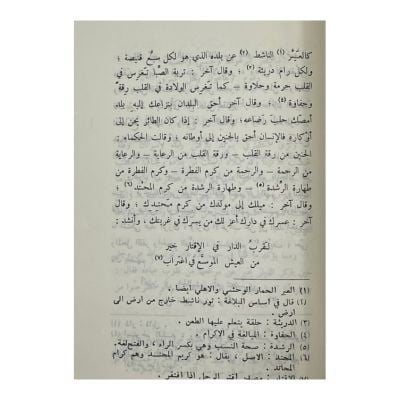 كالعَيْر (١) الناشط (٢) عن بلده الذي هو لكل سبُع قنيصة ،
ولكل رام دريئة (٣) ؛ وقال آخر : تربة الصّبا تغرس في
القلب حرمة وحلاوة – كما تغرس الولادة في القلب رقة
وحفاوة (٤) ؛ وقال آخر أحق البلدان بنزاعك إليه بلد
أمصك حلب رضاعه ؛ وقال آخر : إذا كان الطائر يحن إلى
أوكاره فالإنسان أحق بالحنين إلى أوطانه ؛ وقالت الحكماء :
الحنين من رقة القلب – ورقة القلب من الرعاية – والرعاية
من الرحمة – والرحمة من كرم الفطرة – وكرم الفطرة من
طهارة الرشدة (٥) – وطهارة الرشدة من كرم المحتد (٦) ؛ وقال
آخر : ميلك إلى مولدك من كرم محتدك ؛ وقال
آخر : عسرك في دارك أعز لك من يسرك في غربتك ، وأنشد :
لقرب الدار في الإقتار خير
من العيش الموسّع في اغتراب (٧)
(١) العير الحمار الوحشي والاهلي ايضا .
(٢) قال في اساس البلاغة : ثور ناشط خارج من ارض الى
ارض .
(٣) الدريئة : حلقة يتعلم عليها الطعن .
(٤) الحفاوة : المبالغة في الاكرام .
(٥) الرشدة : صحة النسب وهي بكسر الراء ، والفتح لغة .
(٦) المحتد : الاصل ، يقال : هو كريم المحتد وهم كرام
المحاتد .
(٧) الاقتار : مصدر أقتر الرجل اذا افتقر .